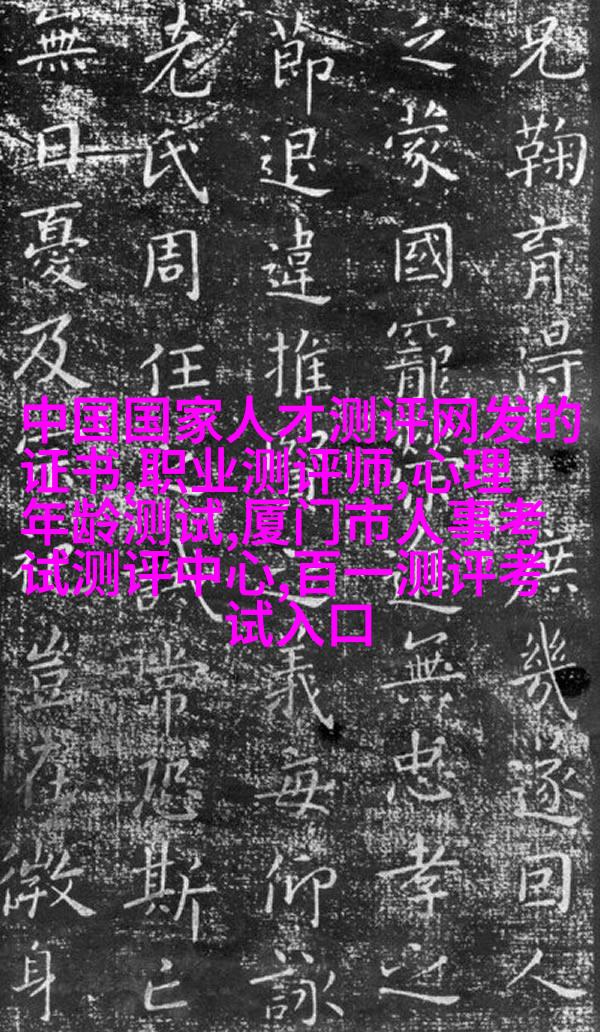 兄鞠育得無幾遂回人
之蒙國寵無忠孝之
節退違推義每仰詠
老氏周任常恐斯亡
無日憂及豈在微身
中国国家人才测评网发的
证书,职业测评师,心理
年龄测试,厦门市人事考
试测评中心,百一测评考
试入口